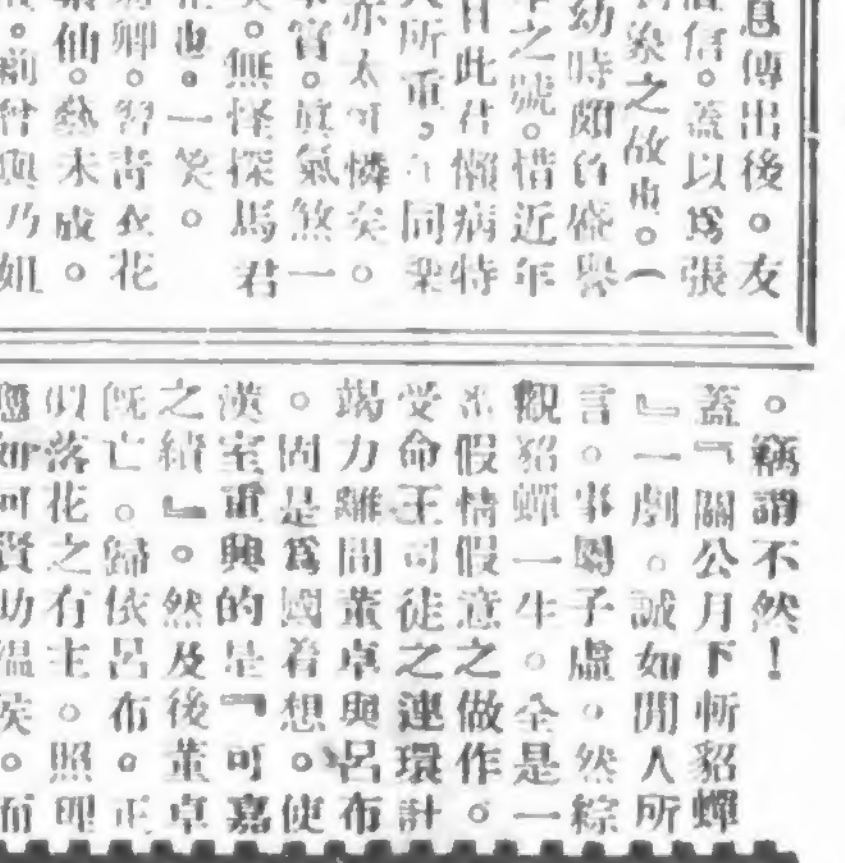 息傳出後。友
置信。蓋以爲張
對象之故也。(
幼時頗負盛譽
年之號。惜近年
日此君懶病特
人所重，在同業
亦太可憐矣。
事實。眞氣煞一
矣。無怪探馬君
也。一笑。
卿。習青衣花
仙。藝未成。
前曾與乃姐
。竊謂不然！
蓋『關公月下斬貂蟬
』一劇。誠如開人所
言。事屬子虛。然綜
觀貂蟬一生。全是一
齣假情假意之做作。
受命王司徒之連環計
竭力離間董卓與呂布
。固是爲國着想。使
漢室重興的是『可嘉
之績』。然及後董卓
旣亡。歸依呂布。正
似落花之有主。照理
應如可賢助溫侯。而